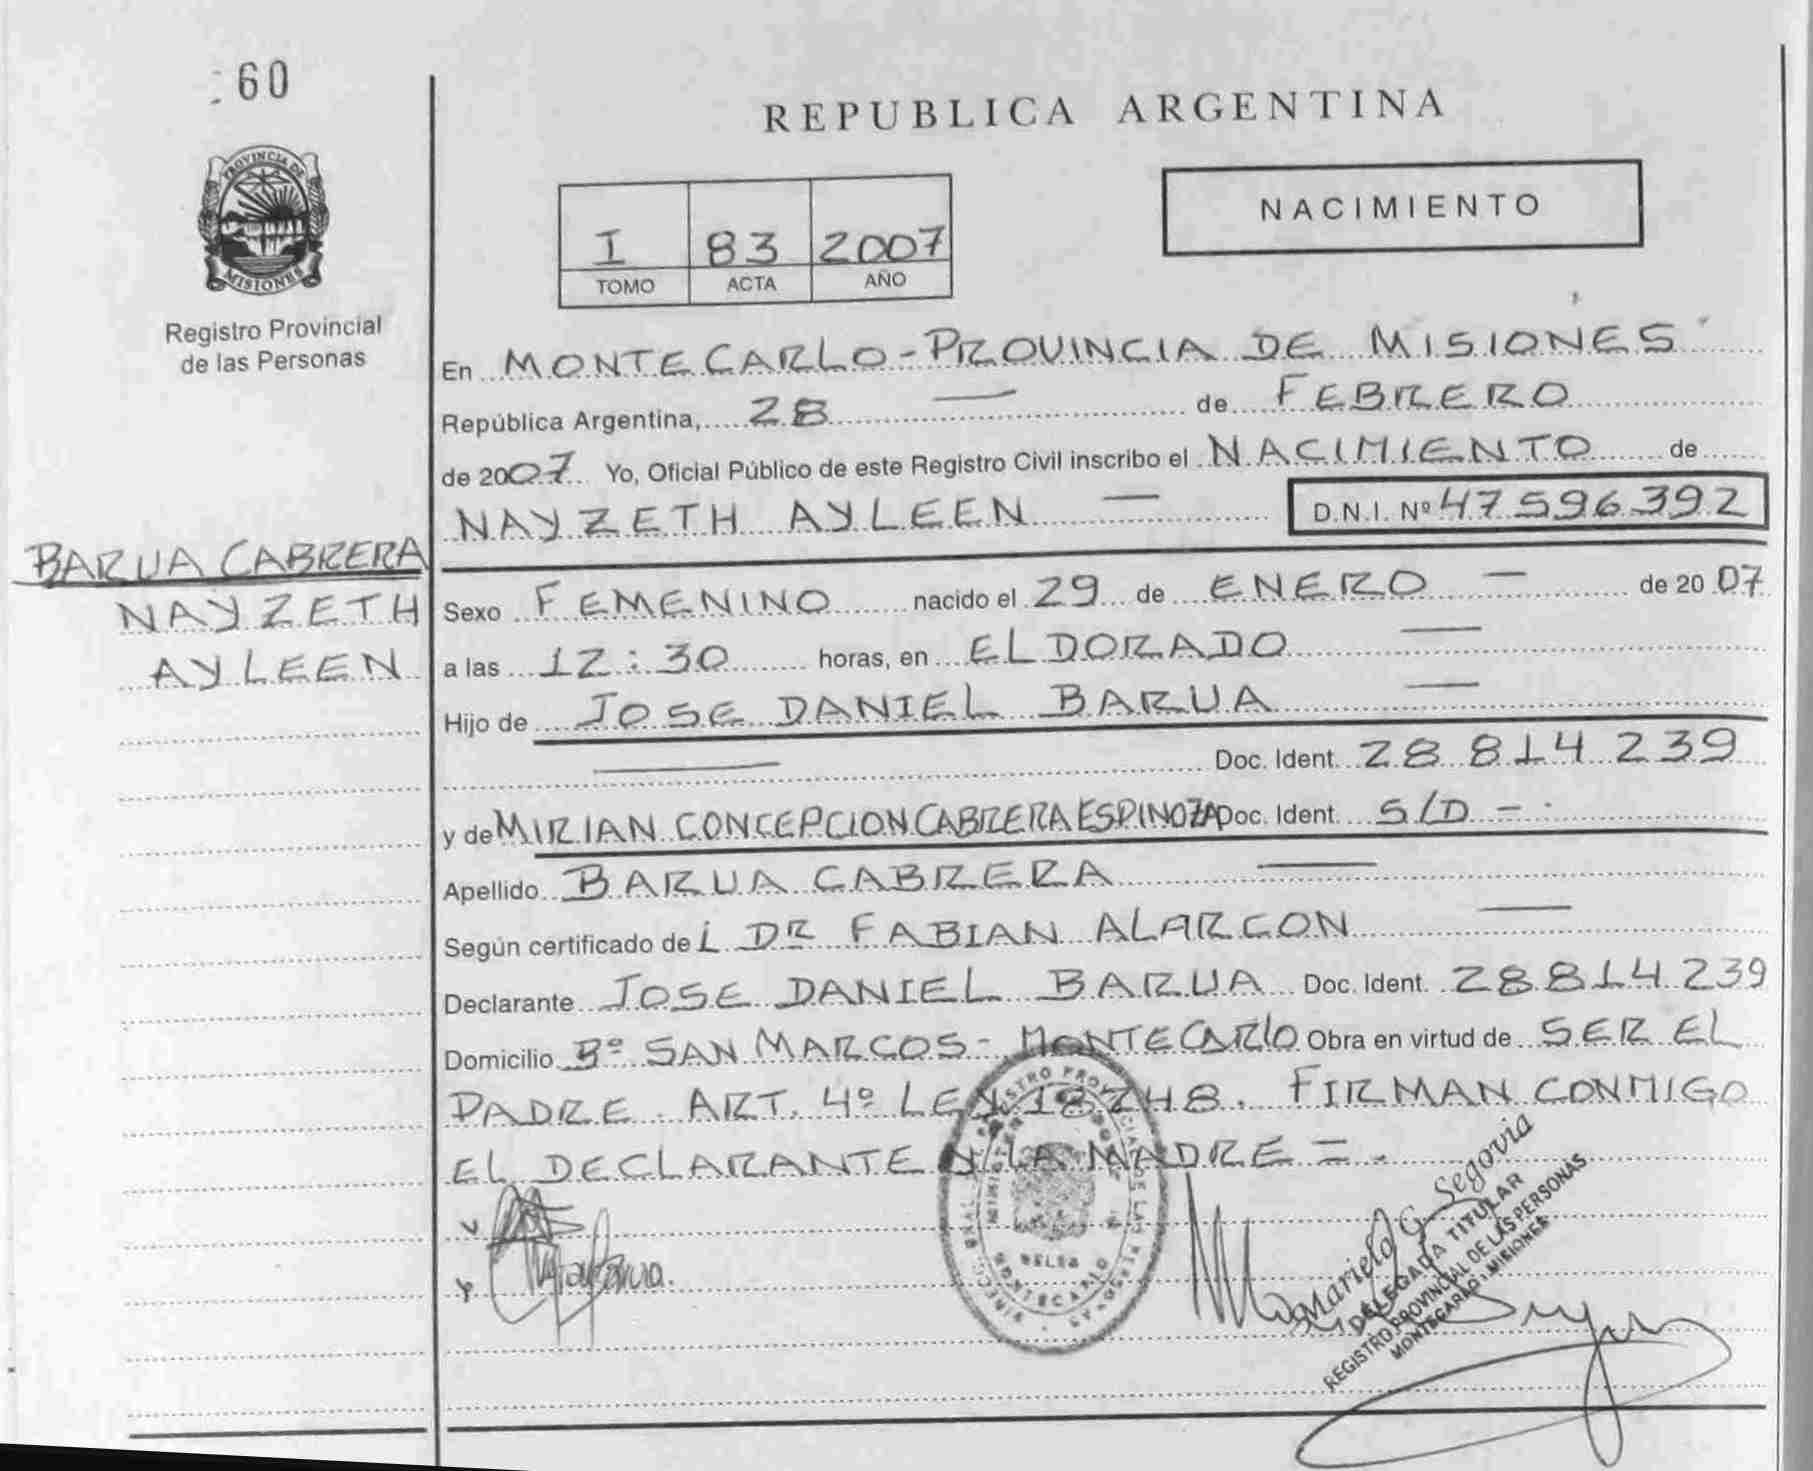 60
PROVINCIA DE
MISIONES
Registro Provincial
de las Personas
BARUA CABRERA
NAYZETH
AYLEEN
REPUBLICA ARGENTINA
NACIMIENTO
I 83 2007
TOMO ACTA AÑO
En MONTECARLO - PROVINCIA DE MISIONES
República Argentina, 28 — de FEBRERO
de 2007 Yo, Oficial Público de este Registro Civil inscribo el NACIMIENTO de
NAYZETH AYLEEN — D.N.I. Nº 47.596.392
Sexo FEMENINO nacido el 29 de ENERO — de 2007
a las 12:30 horas, en ELDORADO —
Hijo de JOSE DANIEL BARUA —
— Doc. Ident. 28.814.239
y de MIRIAN CONCEPCION CABRERA ESPINOZA Doc. Ident. S/D -.
Apellido BARUA CABRERA —
Según certificado del DR FABIAN ALARCON —
Declarante JOSE DANIEL BARUA Doc. Ident. 28.814.239
Domicilio Bº SAN MARCOS - MONTECARLO Obra en virtud de SER EL
PADRE. ART. 4º LEY 18248. FIRMAN CONMIGO
EL DECLARANTE Y LA MADRE = .
Mariela G. Segovia
DELEGADA TITULAR
REGISTRO PROVINCIAL DE LAS PERSONAS
MONTECARLO - MISIONES